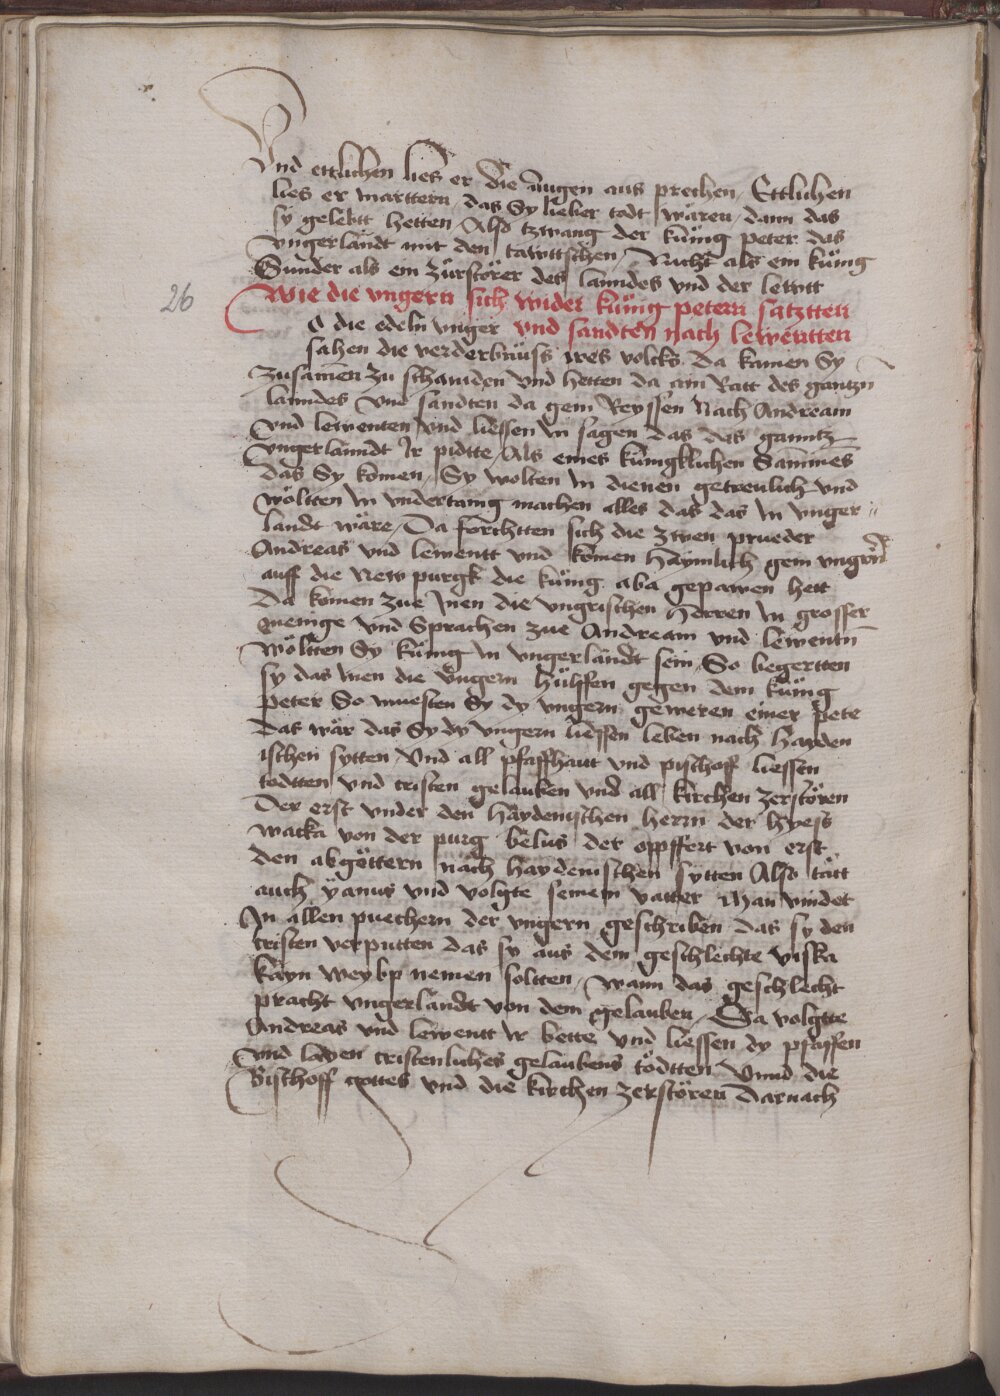 Vnd ettlichen lies er die augen aus prechen Ettlichen
lies er marttern / das Sy lieber todt wären / dann das
sy gelebtt hetten / Also tzwang der künig peter das
vngerlandt mit den tawttschen / Nicht als ein künig
Sunder als ein zurstörer des lanndes vnd der lewtt
26
Wie die vngern sich wider künig petern satztten
vnd sandten nach lewentten
O die edeln vnger
sahen die verderbnüss ires volcks Da kamen Sy
zusamen zu schanaden vnd hetten da ain Ratt des gantzn
lanndes vnd sandten da gein Reyssen Nach Andream
vnd lewenten vnd liessen in sagen das das ganntz
vngerlanndt Ir pidtte / Als eines künigklichen Sammes
das Sy komen / Sy wolten in dienen getrewlich vnd
wöltten in vndertänig machen alles das das in vnger
landt wäre / Da forchtten sich die zwen prueder
Andreas vnd lewentt vnd komen haymlich gein vngern
auff die New purgk die künig aba gepawen hett
Da komen zue Inen die vngrischen Herren in grosser
menige vnd Sprachen zue Andream vnd lewentn
wöltten Sy künig in vngerlandt sein / So begertten
sy das inen die vngern hülffen gegen dem künig
peter So muesten Sy dy vngern geweren einer pete
Das wär das Sy dy vngern liessen leben nach hayden
ischen sytten vnd all pfaffhait vnd pischoff liessen
todtten vnd cristen gelauben vnd all kirchen zerstören
Der erst vnder den haydenischen herrn der hyess
watka von der purg belus der oppffert von erst
den abgöttern nach haydenischen sytten Also tätt
auch yanus vnd volgte seinem vatter Man vindet
In allen puechern der vngern geschriben das sy den
cristen verputten das sy aus dem geschlechte viska
kayn weybp nemen soltten / wann das geschlecht
pracht vngerlandt von dem gelauben / Da volgtte
Andreas vnd lewentt ir bette vnd liessen dy pfaffen
vnd layen cristenliches gelaubens tödtten Vnnd die
Bischoff gottes vnd die kirchen zerstören Darnach